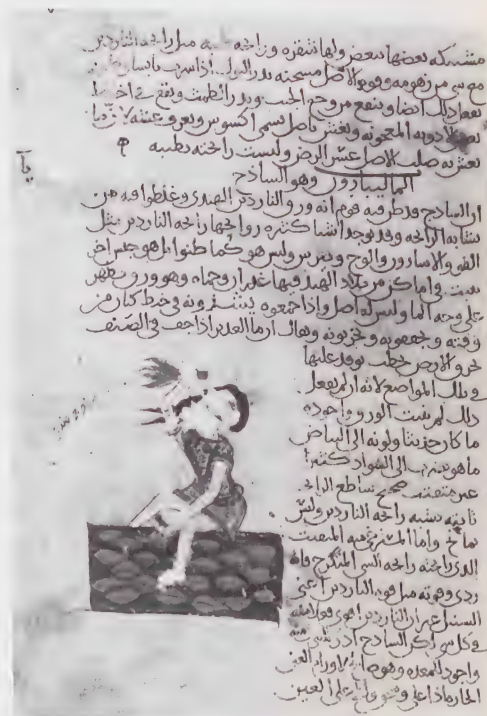 مشتبكه بعضها ببعض ولها شقره ورائحه طيبه مثل رائحه الناردين
مع شى من زهومه وقوه الاصل مسخنه يدر البول اذا شرب
يفعل ذلك ايضا وينفع من وجع الجنب ويدر الطمث ويقع فى اخلاط
بعض الادويه المعجونه ويغش باصل يسمى اكسوس ويعرف غشه لان ما
يغش به صلب الاصل عسر الرض وليست رائحته بطيبه
يآ
الماليباثرون وهو الساذج
ان الساذج قد ظن فيه قوم انه ورق الناردين الهندى وغلطوا فيه من
تشابه الرائحه وقد يوجد اشيا كثيره روائحها رائحه الناردين مثل
الفو والاسارون والوج وايرس وليس هو كما ظنوا بل هو جنس اخر
ينبت فى اماكن من بلاد الهند فيها غدران وحماه وهو ورق يظهر
على وجه الما وليس له اصل واذا جمعوه فى خيط كتان من
وقته ويجففونه ويخزنونه ويقال ان ما الغدير اذا جف فى الصيف
تحرق الارض بحطب يوقد عليها
وتلك المواضع لانه ان لم يفعل
ذلك لم ينبت الورق واجوده
ما كان حديثا ولونه الى البياض
ما هو يضرب الى السواد كثيرا
غير متفتت صحيح ساطع الرائحه
ثابته يشبه رائحه الناردين وليس
بمالح واما المسترخى منه المتفتت
الذى رائحته رائحه الشى المتكرج فانه
ردى وقوته مثل قوه الناردين اعنى
السنبل غير ان الناردين اقوى فعلا منه
الساذج ادر منه
واجود للمعده وهو صالح لاورام العين
الحاره اذا غلى على العين